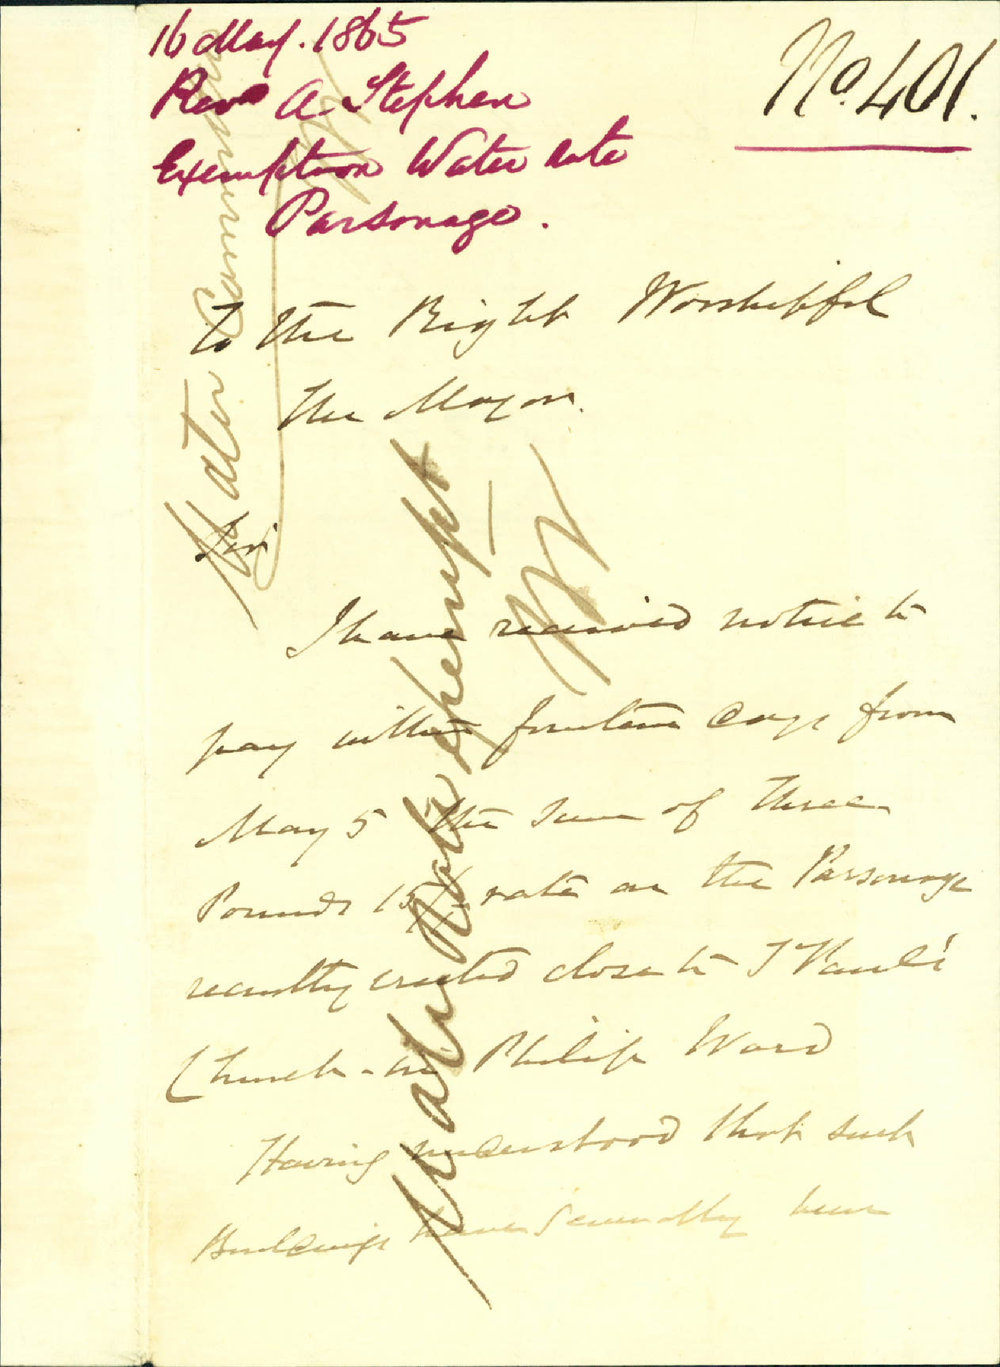 16 May. 1865
Revd A. Stephen
Exemption Water rate
Parsonage.
No. 401.
To the Right Worshipful
the Mayor.
Sir
I have received notice to
pay within fourteen days from
May 5 the sum of Three
Pounds 15/ rate on the Parsonage
recently erected close to St Paul's
Church in Philip Ward
Having understood that such
Buildings have generally been
Water Rate exempt
Water